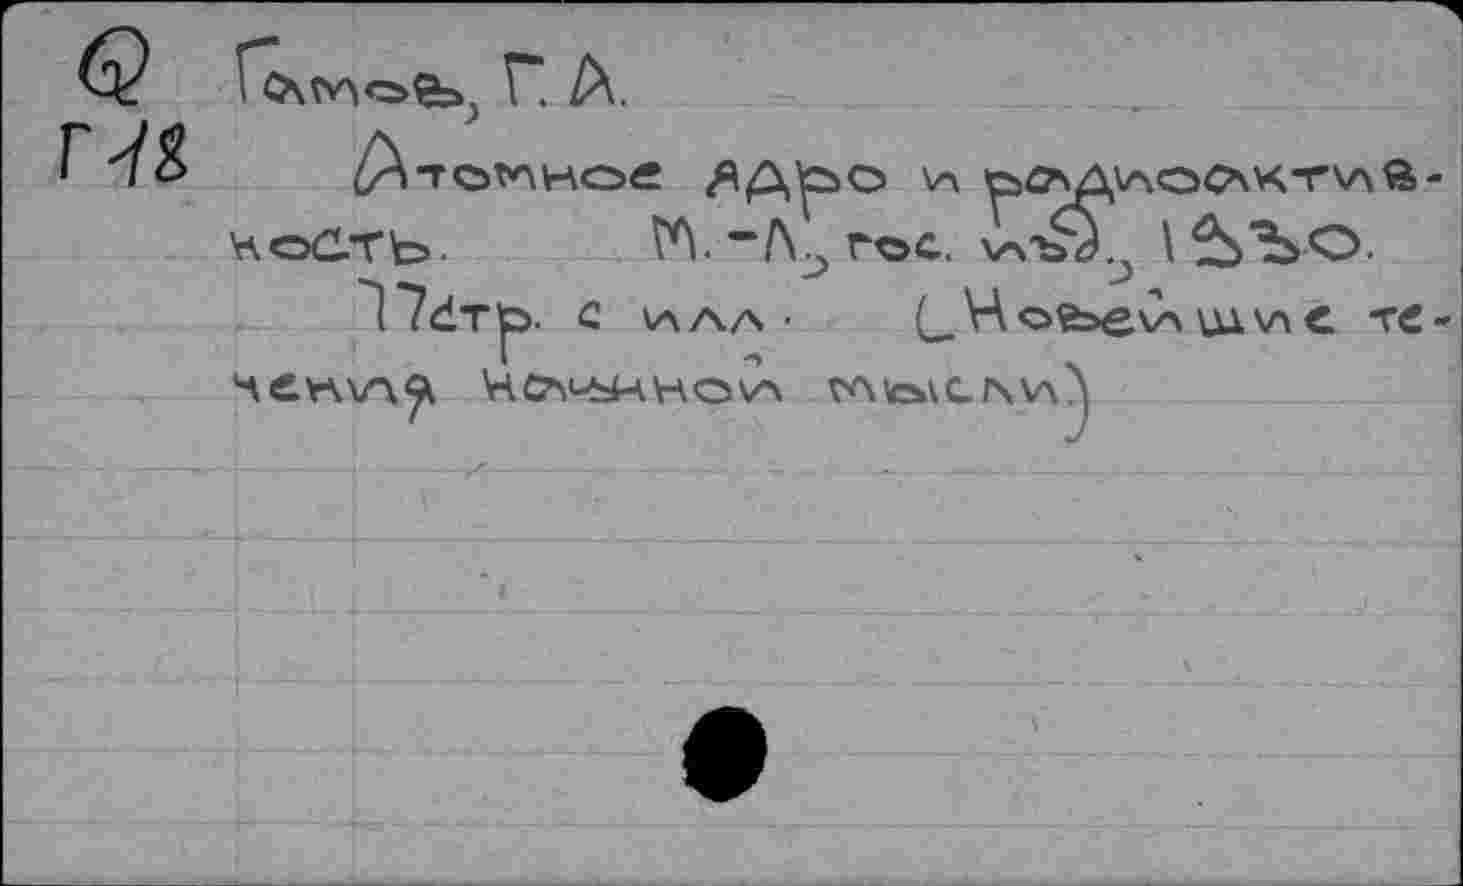 Q Гамов, Г. А.
Г 18 Атомное ядро и радиоактив-
ность. М.-Л., гос. изд., 1930.
172стр. с илл. (Новейшие те-
чения научной мысли)